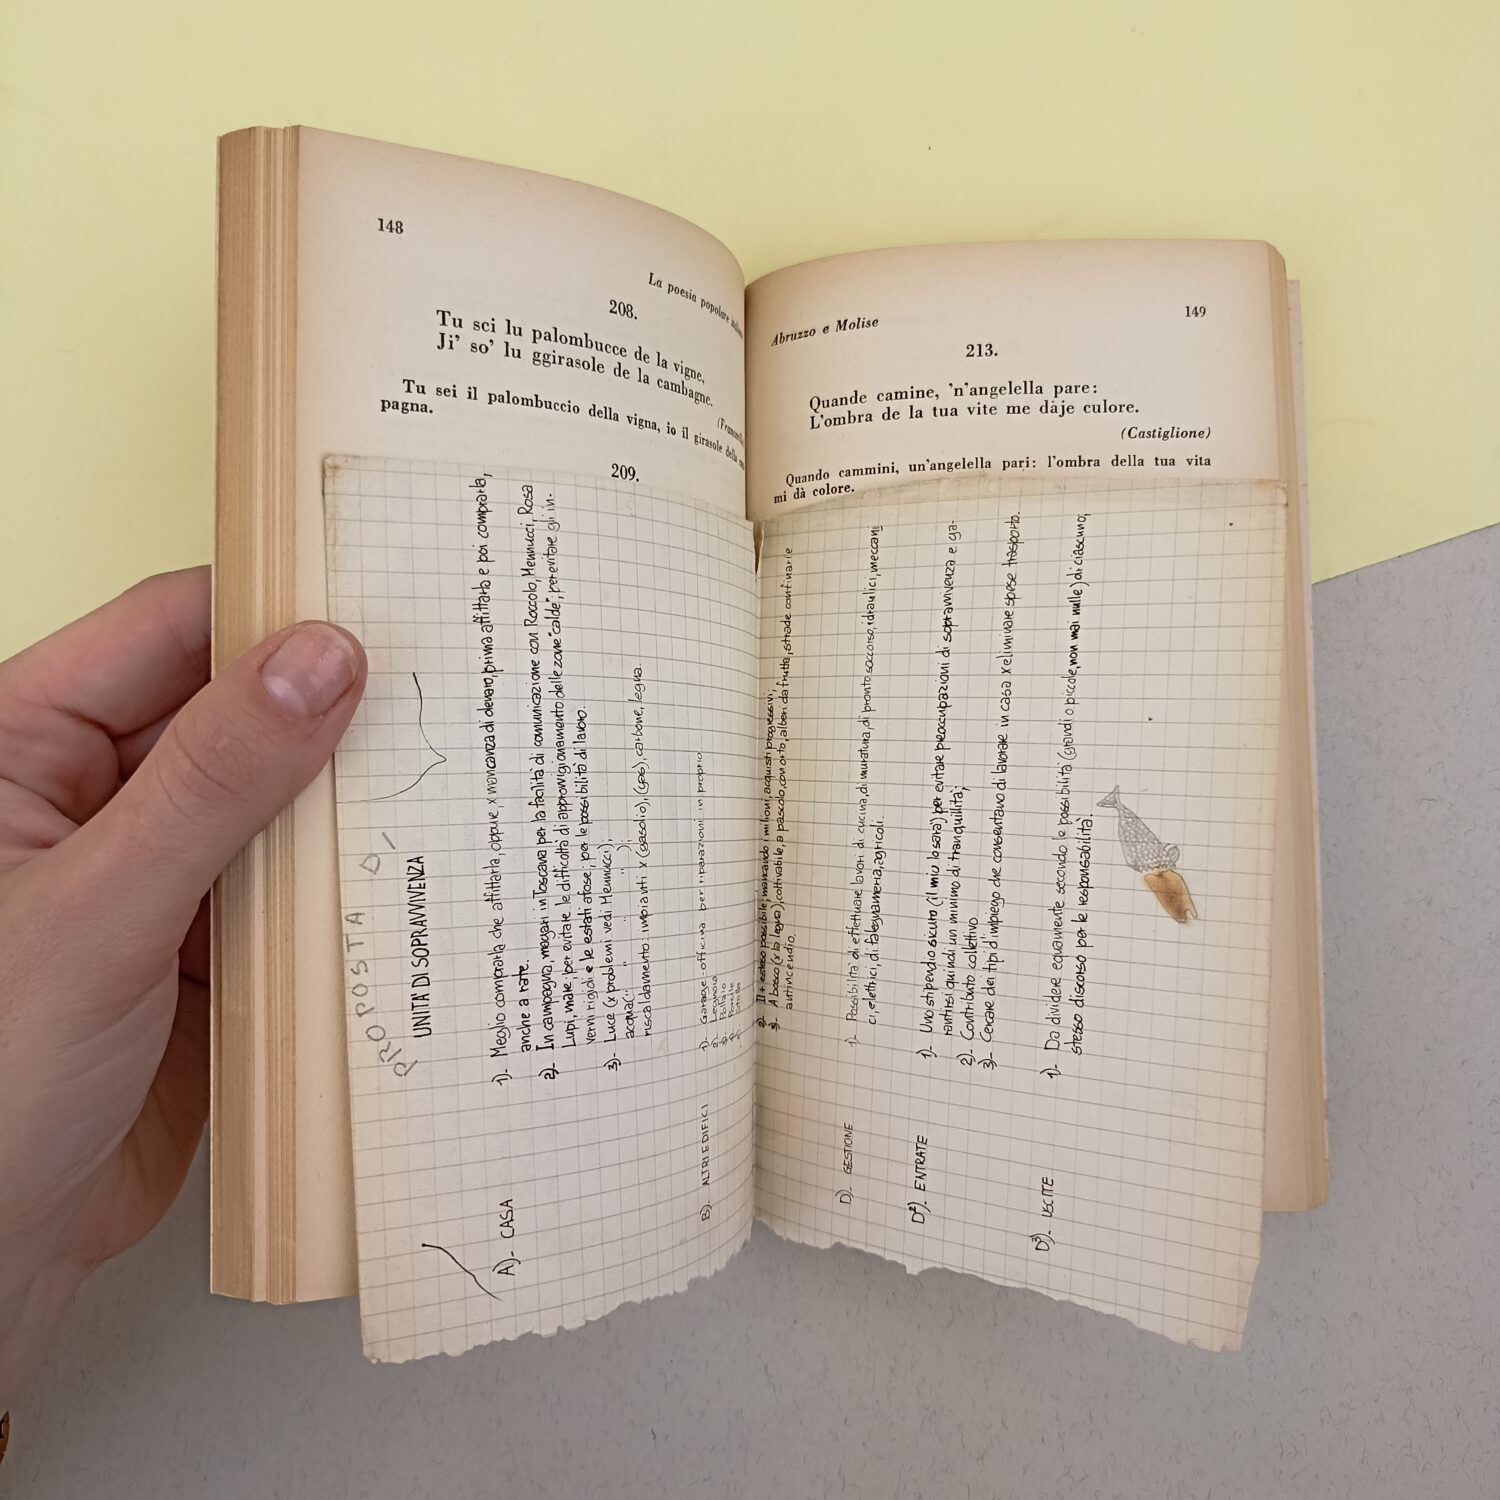 148
La poesia popolare
208.
Tu sci lu palombucce de la vigne,
Ji' so' lu ggirasole de la cambagne.
Tu sei il palombuccio della vigna, io il girasole della
pagna.
209.
Abruzzo e Molise
149
213.
Quande camine, 'n'angelella pare:
L'ombra de la tua vite me dàje culore.
(Castiglione)
Quando cammini, un'angelella pari: l'ombra della tua vita
mi dà colore.
PROPOSTA DI
UNITA' DI SOPRAVVIVENZA
A)- CASA
1)- Meglio comprarla che affittarla, oppure, x mancanza di denaro, prima affittarla e poi comprarla,
anche a rate.
2)- In campagna, magari in Toscana per la facilità di comunicazione con Roccolo, Mennucci, Rosa
Lupi, mare; per evitare le difficoltà di approvvigionamento delle zone "calde"; per evitare gli in-
verni rigidi e le estati afose; per le possibilità di lavoro.
3)- Luce (x problemi vedi Mennucci);
acqua( " " " );
riscaldamento: impianti x (gasolio), (gas), carbone, legna.
B)- ALTRI EDIFICI
1)- Garage-officina per riparazioni in proprio
2)- Legnaia
3)- Pollaio
4)- Porcile
5)- Stalla
2)- Il + esteso possibile, mancando i milioni, acquisti progressivi;
3)- A bosco (x la legna), coltivabile, a pascolo, con orto, alberi da frutta, strade confinarie
antincendio.
D)- GESTIONE
1)- Possibilità di effettuare lavori di cucina, di muratura, di pronto soccorso, idraulici, meccani
ci, elettrici, di falegnameria, agricoli.
D²)- ENTRATE
1)- Uno stipendio sicuro (il mio lo sarà) per evitare preoccupazioni di sopravvivenza e ga-
rantirsi quindi un minimo di tranquillità;
2)- Contributo collettivo
3)- Cercare dei tipi d'impiego che consentano di lavorare in casa x eliminare spese trasporto.
D³)- USCITE
1)- Da dividere equamente secondo le possibilità (grandi o piccole, non mai nulle) di ciascuno;
stesso discorso per le responsabilità.